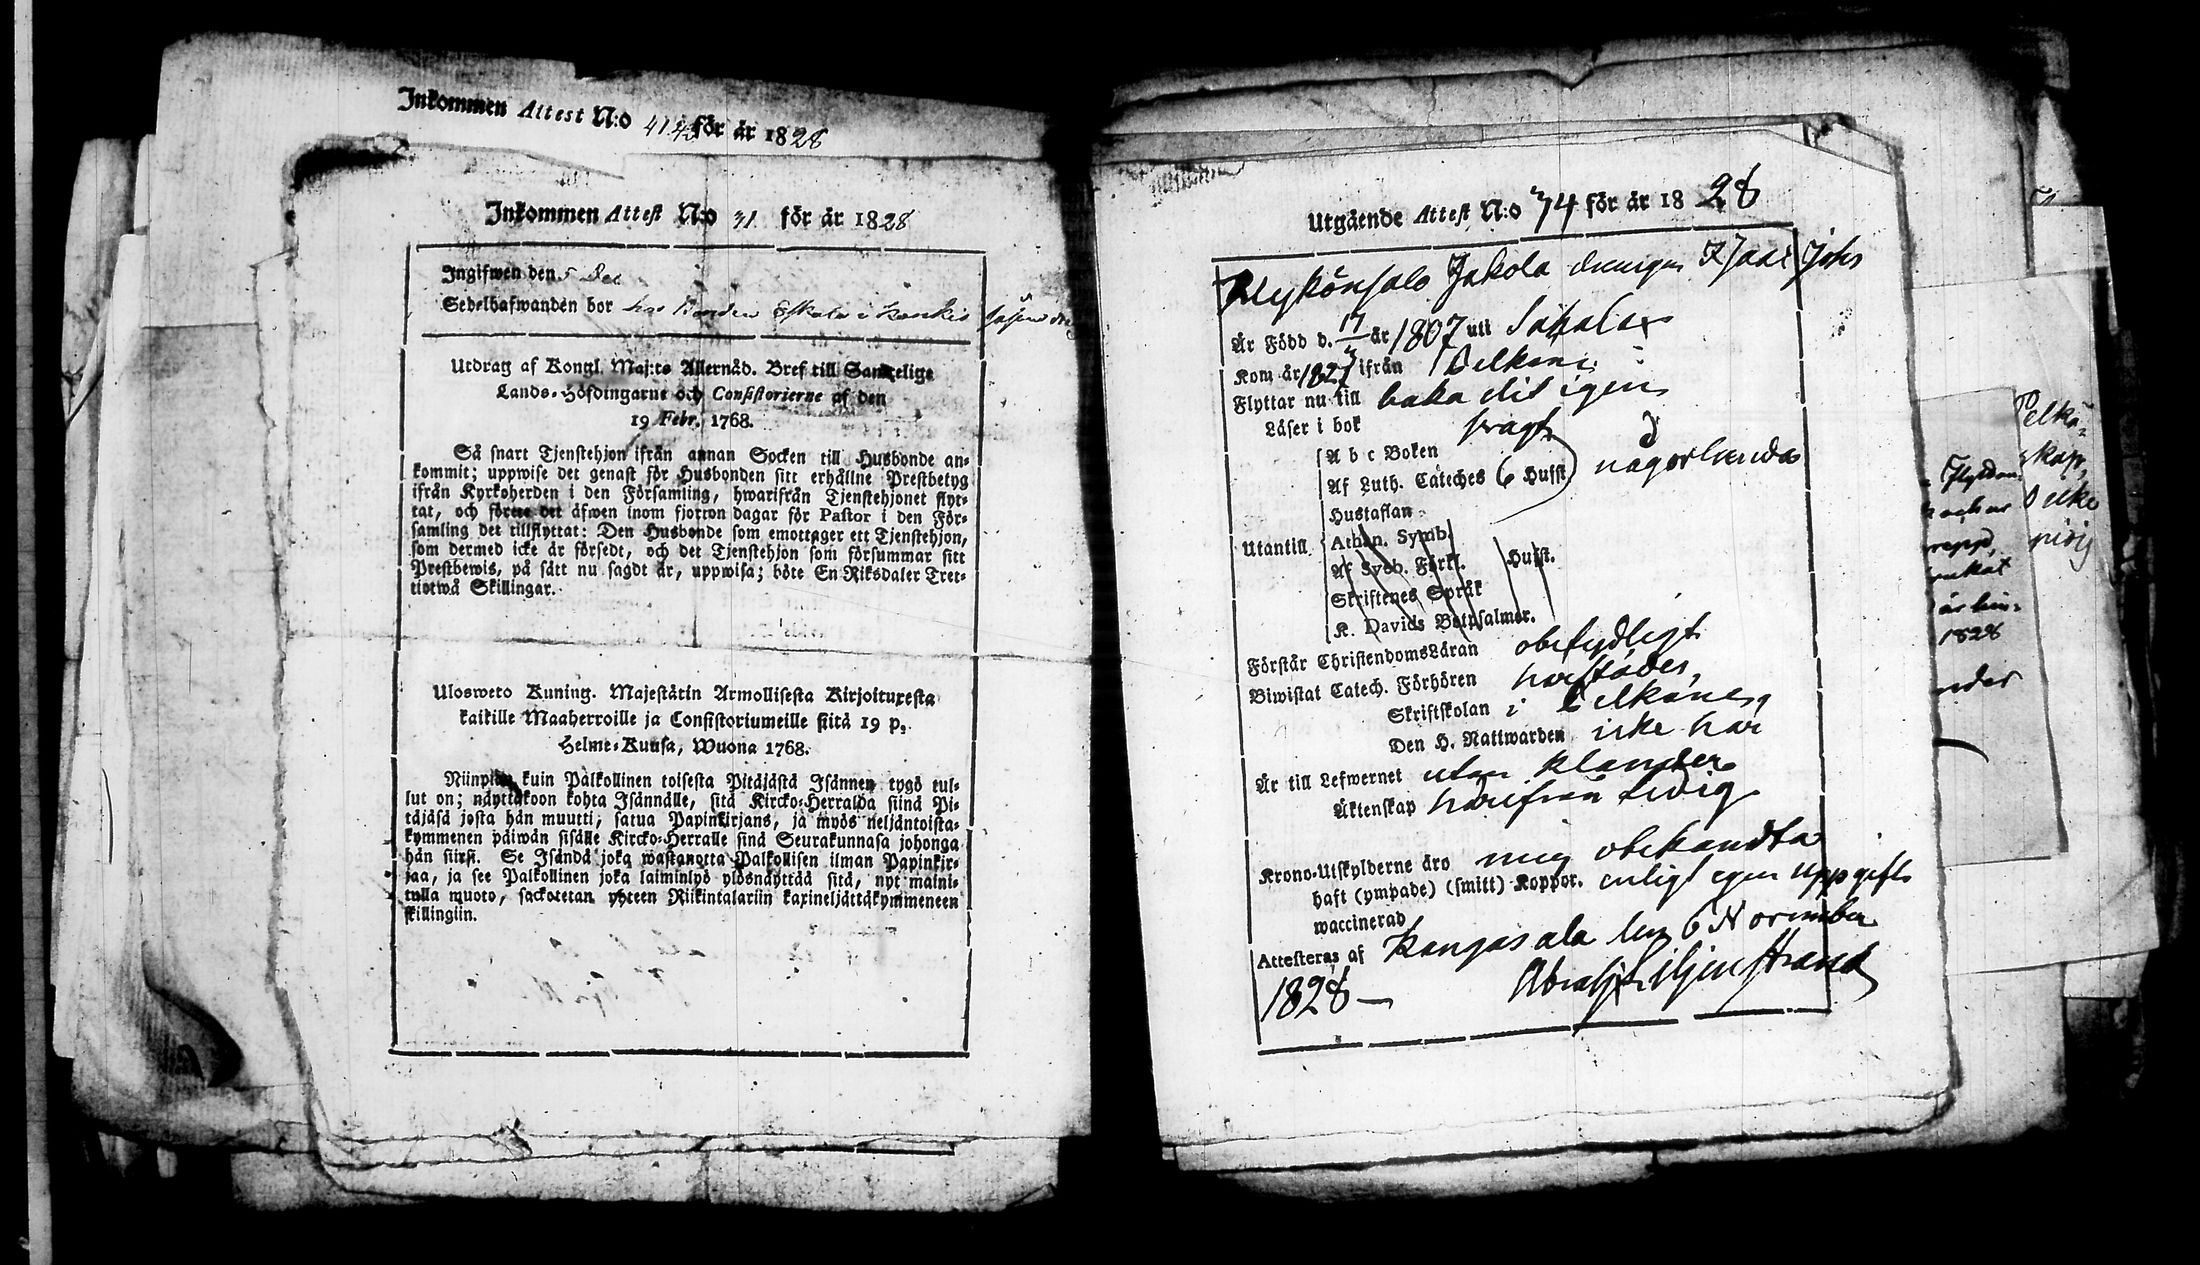 Inkommen Attest N:o 41 42 för år 1828
Inkommen Attest N:o 41 för år 1828
Ingifwen den 5 Dec
Sedelhafwanden bor hos Bonden Eskola i
Utdrag af Kongl. Maj:ts Allernåd. Bref till Samtelige
Lands-Höfdingarne och Consistorierne af den
19 Febr. 1768.
Så snart Tjenstehjon ifrån annan Socken till Husbonde an-
kommit; uppwise det genast för Husbonden sitt erhållne Prestbetyg
ifrån Kyrkoherden i den Församling, hwarifrån Tjenstehjonet flyt-
tat, och förete det äfwen inom fjorton dagar för Pastor i den För-
samling det tillflyttat: Den Husbonde som emottager ett Tjenstehjon,
som dermed icke är försedt, och det Tjenstehjon som försummar sitt
Prestbewis, på sätt nu sagdt är, uppwisa; böte En Riksdaler Tret-
tiotwå Skillingar.
Ulosweto Kuning. Majestätin Armollisesta Kirjoituxesta
kaikille Maaherroille ja Consistoriumeille siitä 19 p.
Helme-Kuusa, Wuona 1768.
Niinpian kuin Palkollinen toisesta Pitäjästä Isännen tygö tul-
lut on; näyttäkoon kohta Isännälle, sitä Kircko-Herralda siinä Pi-
täjäsä josta hän muutti, saatua Papinkirjans, ja myös neljäntoista-
kymmenen päiwän sisälle Kircko-Herralle sinä Seurakunnasa johonga
hän siirsi. Se Isändä joka wastanotta Palkollisen ilman Papinkir-
jaa, ja see Palkollinen joka laiminlyö ylösnäyttää sitä, nyt maini-
tulla muoto, sackotetan yhteen Riikintalariin kaxineljättäkymmeneen
skillingiin.
Utgående Attest N:o 74 för år 1828
Jakola drengen Isaac Johs
Är Född d. 17 år 1807 uti Sahalax
Kom år 1827 ifrån Pelkäne
Flyttar nu till baka dit igen
Läser i bok swagt
Utantill
A b c Boken
Af Luth. Cateches 6 Hufst någorlunda
Hustaflan
Athan. Symb.
Af Sveb. Förkl. Hufst.
Skriftenes Språk
K. Davids Botpsalmer.
Förstår ChristendomsLäran obetydligt
Biwistat Catech. Förhören härstädes,
Skriftskolan i Pelkäne,
Den H. Nattwarden icke här
Är till Lefwernet utan klander
Äktenskap härifrån ledig
Krono-Utskylderne äro mig obekandta
haft (ympade) (smitt) Koppor. enligt egen uppgift
waccinerad
Attesteras af Kangasala den 6 November
1828 Abrah Liljenstrand
Pelkä-
1828